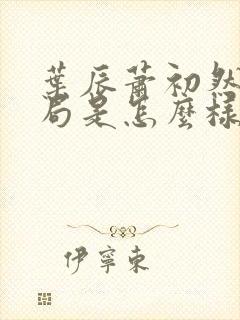 葉辰蕭初然
局是怎麼樣
伊寧東